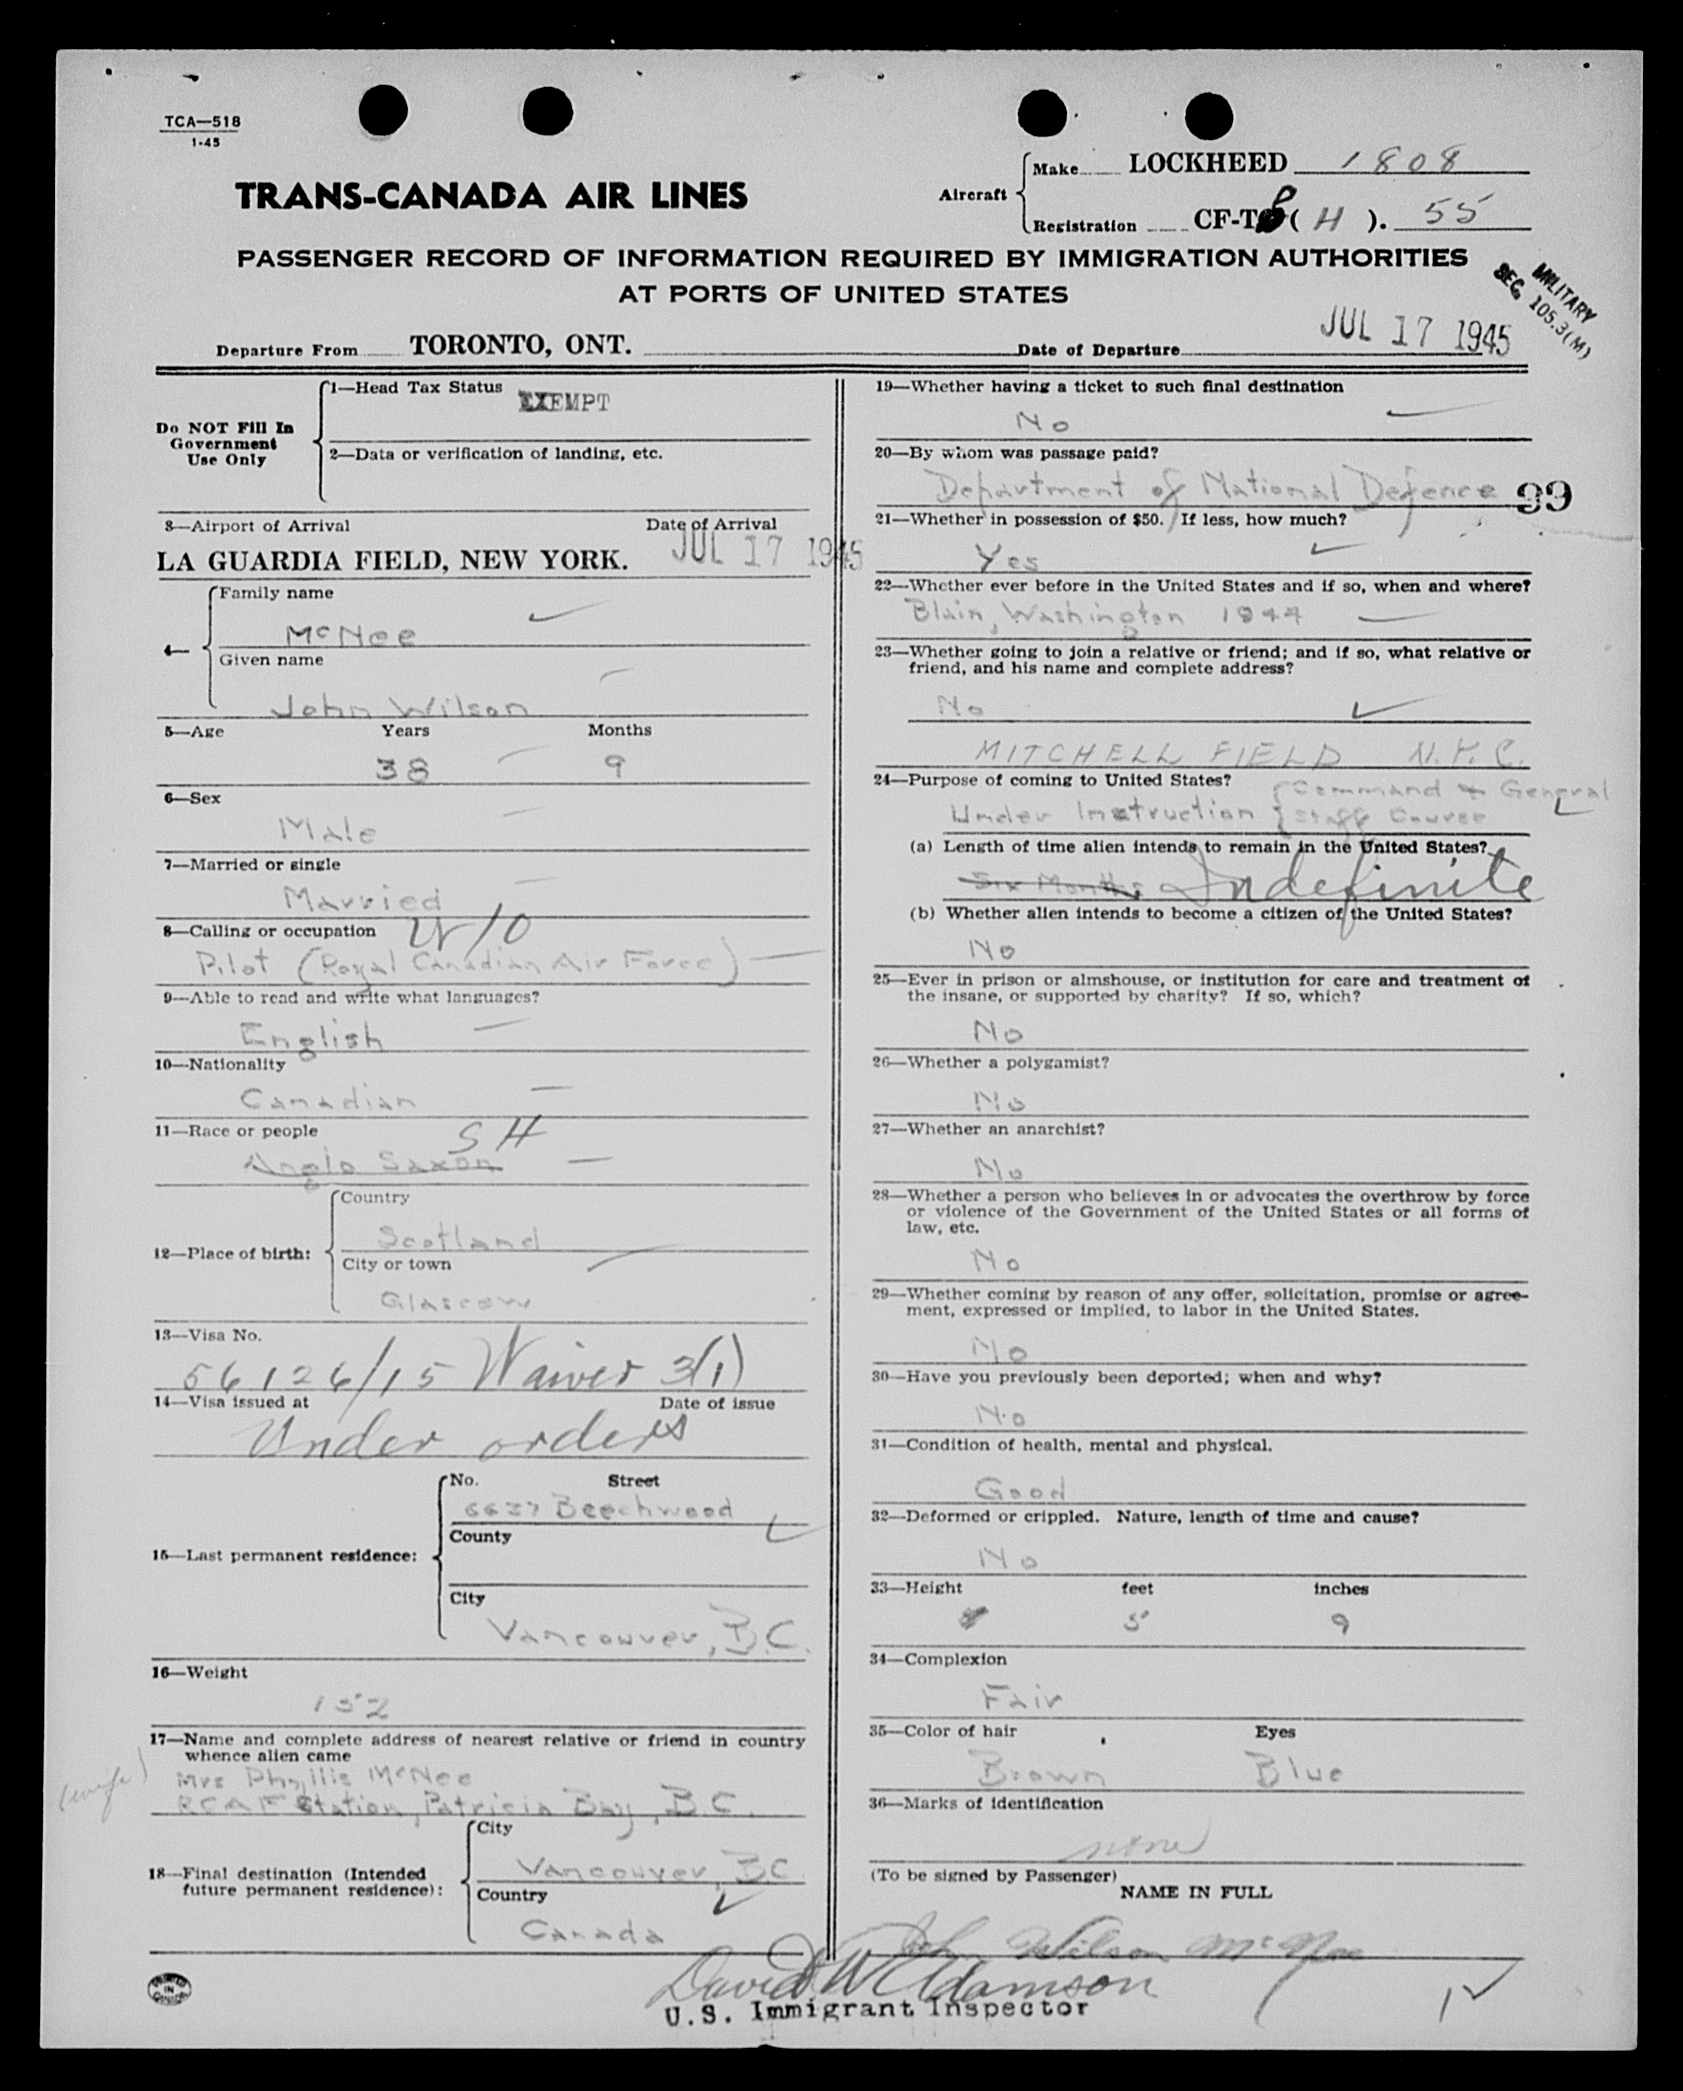 TCA—518
1-45
TRANS-CANADA AIR LINES
Aircraft
Make LOCKHEED 1808
Registration CF-T ( H ). 55
PASSENGER RECORD OF INFORMATION REQUIRED BY IMMIGRATION AUTHORITIES
AT PORTS OF UNITED STATES
MILITARY
SEC. 105.3(M)
Departure From TORONTO, ONT. Date of Departure JUL 17 1945
Do NOT Fill In
Government
Use Only
1—Head Tax Status EXEMPT
2—Data or verification of landing, etc.
3—Airport of Arrival Date of Arrival
LA GUARDIA FIELD, NEW YORK. JUL 17 1945
4—
Family name
McNee
Given name
John Wilson
5—Age Years Months
38 9
6—Sex
Male
7—Married or single
Married
8—Calling or occupation W/O
Pilot (Royal Canadian Air Force)
9—Able to read and write what languages?
English
10—Nationality
Canadian
11—Race or people S H
Anglo Saxon
12—Place of birth:
Country
Scotland
City or town
Glascow
13—Visa No.
56126/15 Waiver 3(1)
14—Visa issued at Date of issue
Under orders
15—Last permanent residence:
No. Street
6637 Beechwood
County
City
Vancouver, B.C.
16—Weight
152
17—Name and complete address of nearest relative or friend in country
whence alien came
(wife) Mrs Phyllis McNee
RCAF Station, Patricia Bay, B.C.
18—Final destination (Intended
future permanent residence):
City
Vancouver, B.C.
Country
Canada
19—Whether having a ticket to such final destination
No
20—By whom was passage paid?
Department of National Defence 99
21—Whether in possession of $50. If less, how much?
Yes
22—Whether ever before in the United States and if so, when and where?
Blain, Washington 1944
23—Whether going to join a relative or friend; and if so, what relative or
friend, and his name and complete address?
No
MITCHELL FIELD N.Y.C.
24—Purpose of coming to United States?
Under Instruction { Command & General
Staff Course
(a) Length of time alien intends to remain in the United States?
Six Months Indefinite
(b) Whether alien intends to become a citizen of the United States?
No
25—Ever in prison or almshouse, or institution for care and treatment of
the insane, or supported by charity? If so, which?
No
26—Whether a polygamist?
No
27—Whether an anarchist?
No
28—Whether a person who believes in or advocates the overthrow by force
or violence of the Government of the United States or all forms of
law, etc.
No
29—Whether coming by reason of any offer, solicitation, promise or agree-
ment, expressed or implied, to labor in the United States.
No
30—Have you previously been deported; when and why?
No
31—Condition of health, mental and physical.
Good
32—Deformed or crippled. Nature, length of time and cause?
No
33—Height feet inches
5 9
34—Complexion
Fair
35—Color of hair Eyes
Brown Blue
36—Marks of identification
none
(To be signed by Passenger)
NAME IN FULL
John Wilson McNee
David W Adamson
U.S. Immigrant Inspector